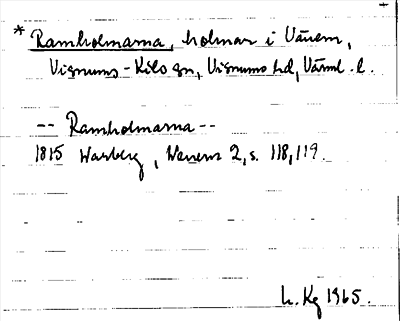 * Ramholmarna, holmar i Vänern,
Visnums-Kils sn, Visnums hd, Värml. l.
-- Ramholmarna --
1815 Warberg, Wenern 2, s. 118, 119.
L. Kg 1965.